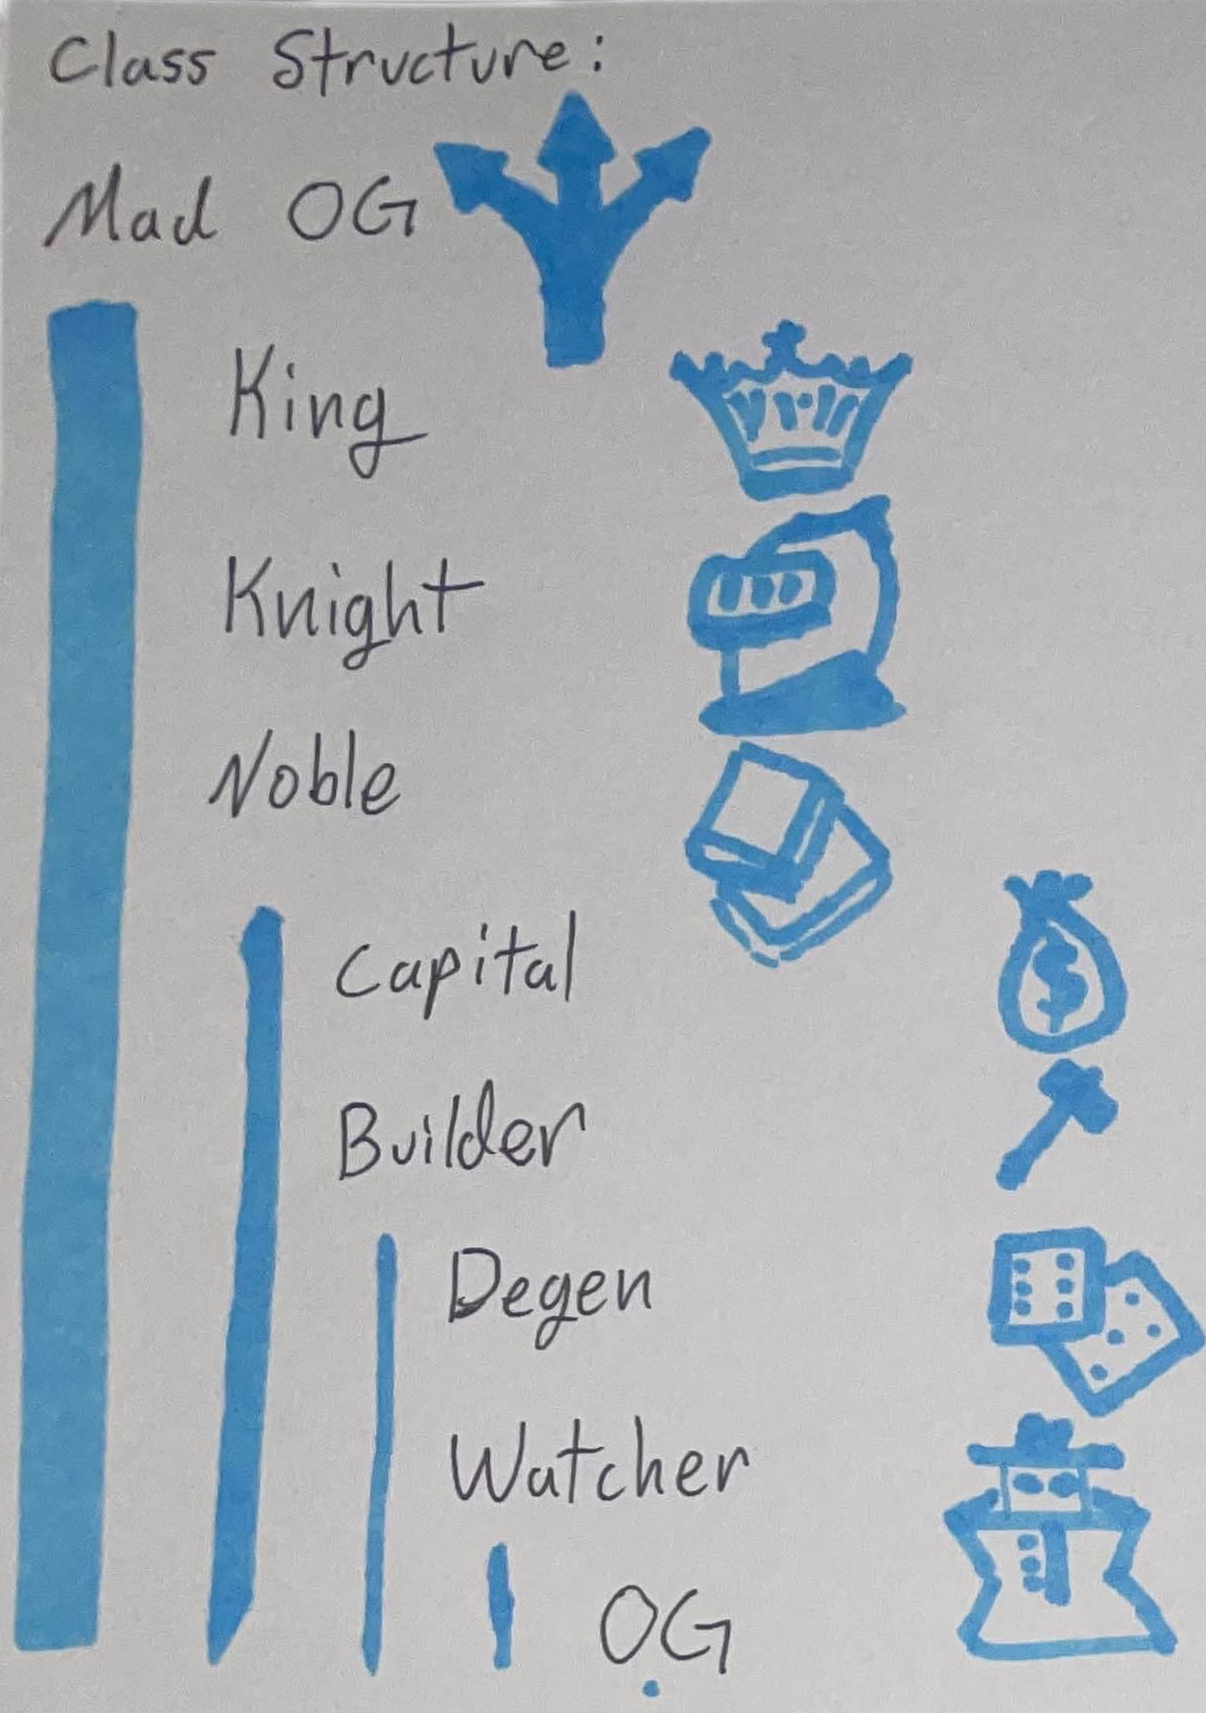 Class Structure:
Mad OG
King
Knight
Noble
Capital
$
Builder
Degen
Watcher
OG